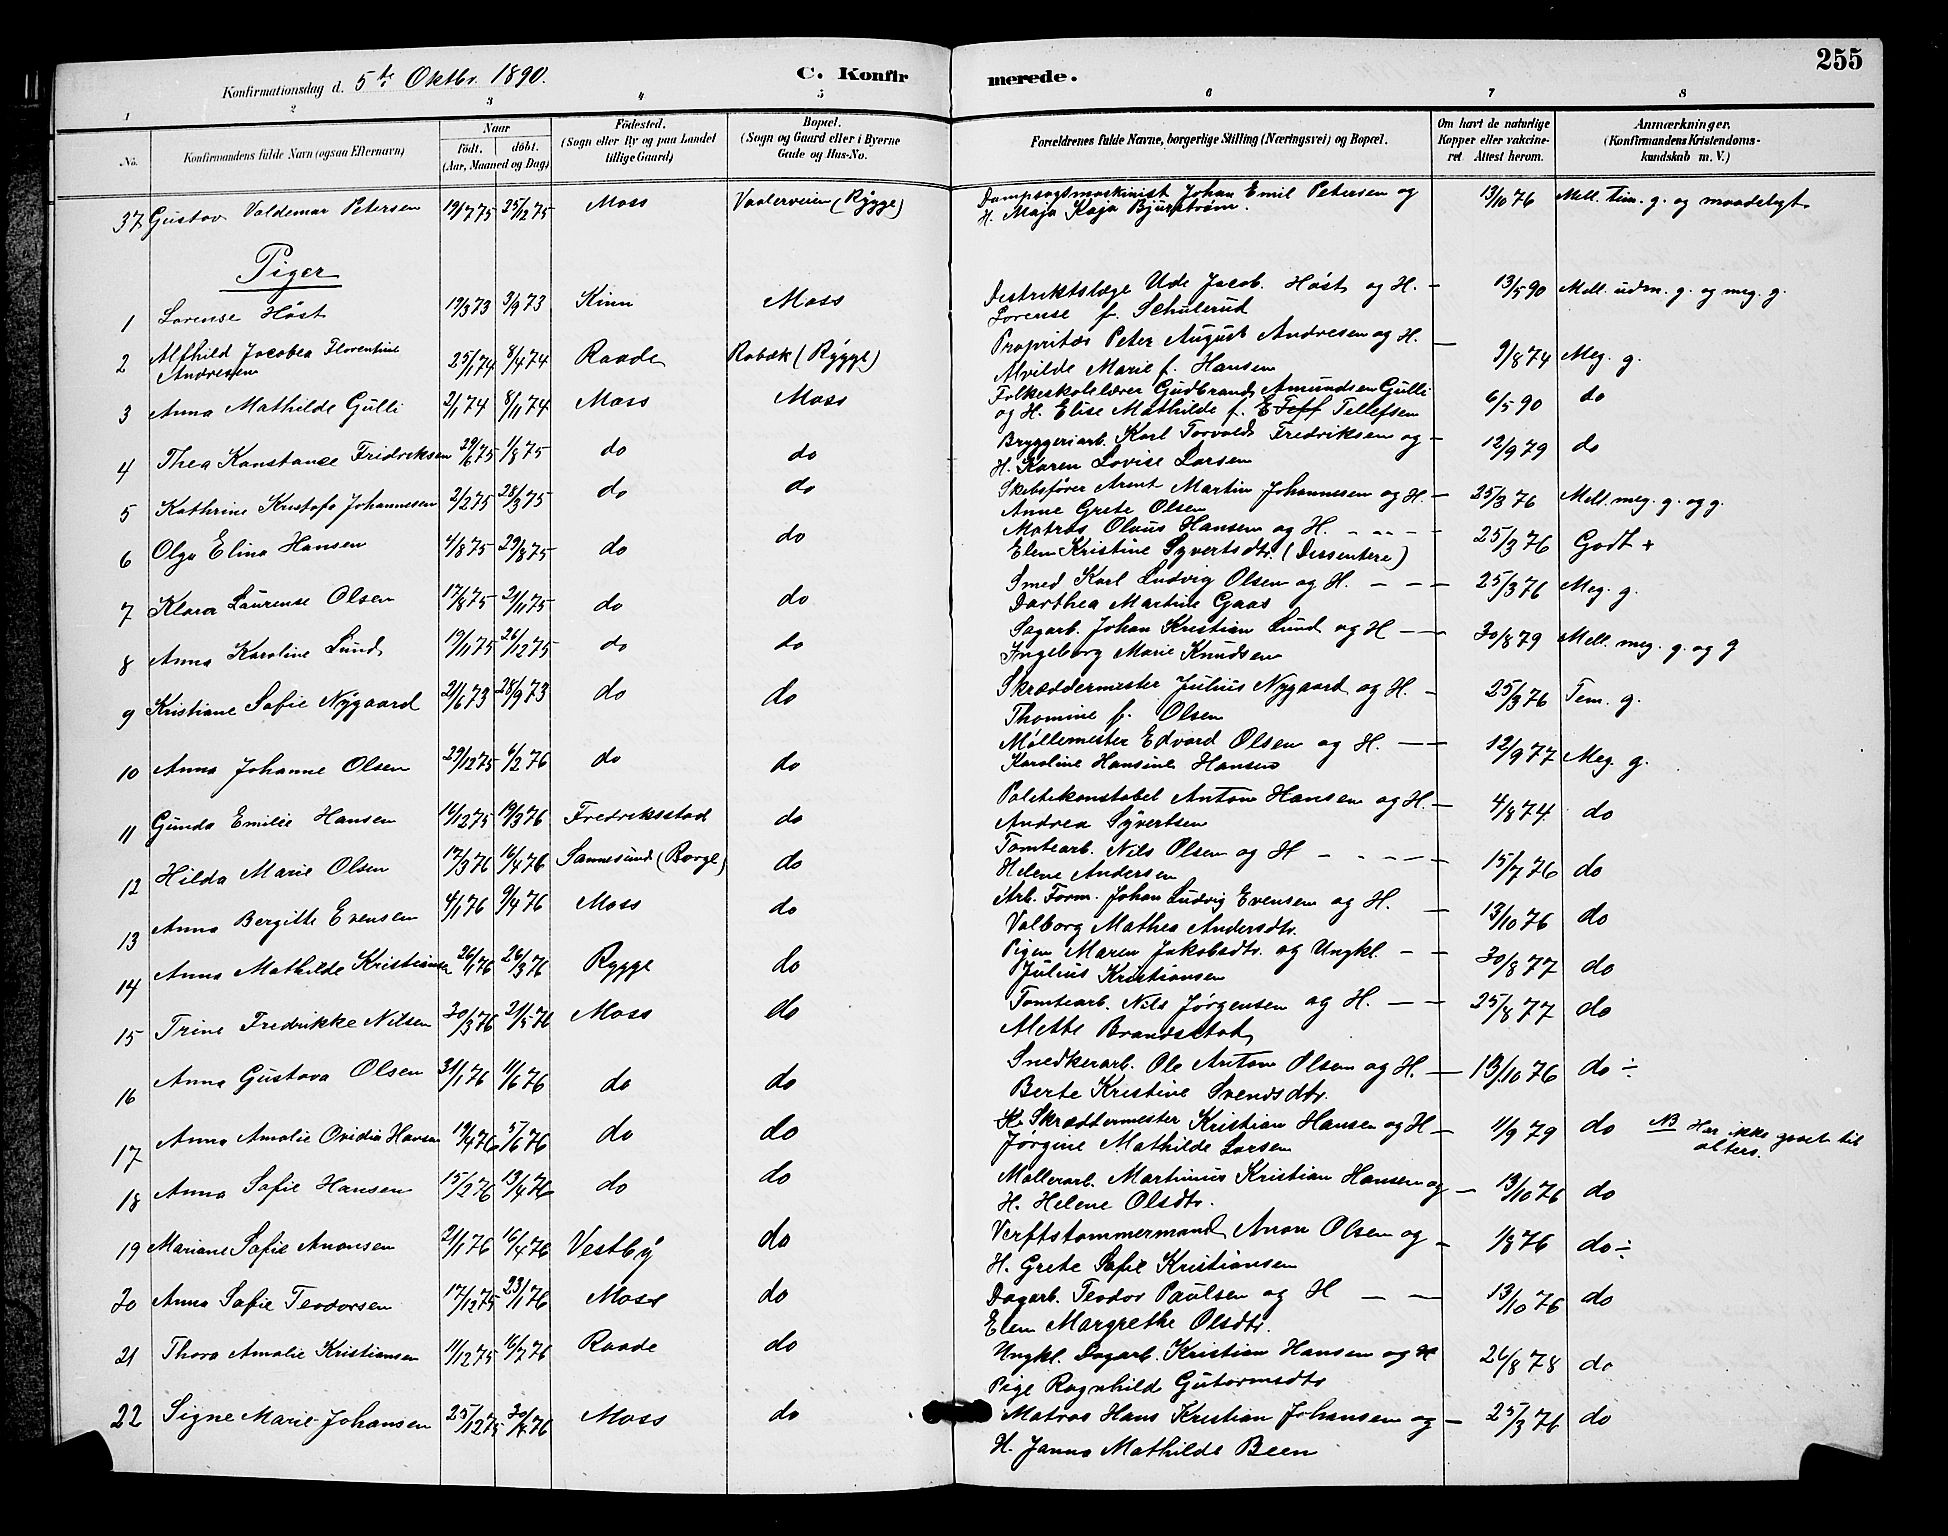 255
Konfirmationsdag d. 5te Oktbr. 1890.
C. Konfirmerede.
1 2 3 4 5 6 7 8
No. Konfirmandens fulde Navn (ogsaa Efternavn) Naar født. døbt. (Aar, Maaned og Dag) Fødested. (Sogn eller By og paa Landet tillige Gaard) Bopæl. (Sogn og Gaard eller i Byerne Gade og Hus-No. Forældrenes fulde Navne, borgerlige Stilling (Næringsvei) og Bopæl. Om havt de naturlige Kopper eller vakcineret Attest herom. Anmærkninger. (Konfirmandens Kristendomskundskab m. V.)
37 Gustav Valdemar Petersen 19/7 75 25/12 75 Moss Vaalerveien (Rygge) Dampsagsmaskinist Johan Emil Petersen og 13/10 76 Mell. tem. g. og maadeligt
H. Maja Kaja Bjurstrøm.
Piger
1 Lorense Høst 19/3 73 3/9 73 Kinn Moss Destriktslæge Ude Jacob. Høst og H. – 13/5 90 Mell. udm. g. og meg. g.
Lorense f. Schulerud
2 Alfhild Jacobea Florentine Andresen 25/1 74 8/4 74 Raade Rabæk (Rygge) Propritæs Peter August Andresen og H. – 9/8 74 Meg. g.
Alvilde Marie f. Hansen
3 Anna Mathilde Gulli 2/1 74 8/11 74 Moss Moss Folkeskolelærer Gudbrand Amundsen Gulli 6/5 90 do
og H. Elise Mathilde f. Tellefsen
4 Thea Konstance Fridriksen 29/6 75 1/8 75 do do Bryggeriarb. Karl Torvald Fredriksen og – 12/9 79 do
H. Karen Lovise Larsen
5 Kathrine Kristofa Johannesen 2/2 75 28/3 75 do do Skibsfører Arent Martin Johannesen og H. – 25/3 76 Mell. meg. g. og g.
Anne Grete Olsen
6 Olga Elina Hansen 4/8 75 29/8 75 do do Matros Olaus Hansen og H. – – – – 25/3 76 Godt +
Elen Kristine Syvertsdtr. (Dissentere)
7 Klara Laurense Olsen 17/8 75 21/11 75 do do Smed Karl Ludvig Olsen og H. – – – 25/3 76 Meg. g.
Dorthea Martine Gaas
8 Anna Karoline Lund 19/11 75 26/12 75 do do Sagarb. Johan Kristian Lund og H – – 30/8 79 Mell. meg. g. og g
Ingeborg Marie Knudsen
9 Kristiane Sofie Nygaard 21/6 73 28/9 73 do do Skræddermester Julius Nygaard og H. – 25/3 76 Tem. g.
Thomine f. Olsen
10 Anna Johanne Olsen 29/12 75 6/2 76 do do Møllemester Edvard Olsen og H. – – 12/9 77 Meg. g.
Karoline Hansine Hansen
11 Gunda Emilie Hansen 16/12 75 19/3 76 Fredriksstad do Politikonstabel Anton Hansen og H. – 4/8 74. do
Andrea Syvertsen
12 Hilda Marie Olsen 17/3 76 16/4 76 Sannesund (Borge) do Tomtearb. Nils Olsen og H – – – – – 15/7 76 do
Helene Andersen
13 Anna Bergitte Evensen 4/1 76 9/4 76 Moss do Arb. Form. Johan Ludvig Evensen og H. – 13/10 76 do
Valborg Mathea Andersdtr.
14 Anna Mathilde Kristiansen 26/1 76 26/3 76 Rygge do Pigen Maren Jakobsdtr. og Ungkl. – – 30/8 77 do
Julius Kristiansen
15 Trine Fredrikke Nilsen 30/3 76 21/5 76 Moss do Tomtearb. Nils Jørgensen og H. – – 25/8 77 do
Mette Brandstad
16 Anna Gustava Olsen 31/1 76 11/6 76 do do Snedkerarb. Ole Anton Olsen og H. – 13/10 76 do ÷
Berte Kristine Svendsdtr.
17 Anna Amalie Ovidia Hansen 19/4 76 5/6 76 do do Skræddermester Kristian Hansen og H – 11/9 79 do NB Har ikke gaaet til alters.
Jørgine Mathilde Larsen
18 Anna Sofie Hansen 15/2 76 13/4 76 do do Møllerarb. Martinius Kristian Hansen og – 13/10 76 do
H. Helene Olsdtr.
19 Mariane Sofie Anonsen 21/1 76 16/4 76 Vestby do Verftstømmermand Anon Olsen og – 1/8 76 do ÷
H. Grete Sofie Kristiansen
20 Anna Sofie Teodorsen 17/12 75 23/1 76 Moss do Dagarb. Teodor Paulsen og H – – 13/10 76 do
Elen Margrethe Olsdtr.
21 Thora Amalie Kristiansen 11/12 75 16/7 76 Raade do Ungkl. Dagarb. Kristian Hansen og H 26/8 78 do
Pige Ragnhild Gutormsdtr
22 Signe Marie Johansen 25/12 75 30/4 76 Moss do Matros Hans Kristian Johansen og – 25/3 76 do
H. Janna Mathilde Been